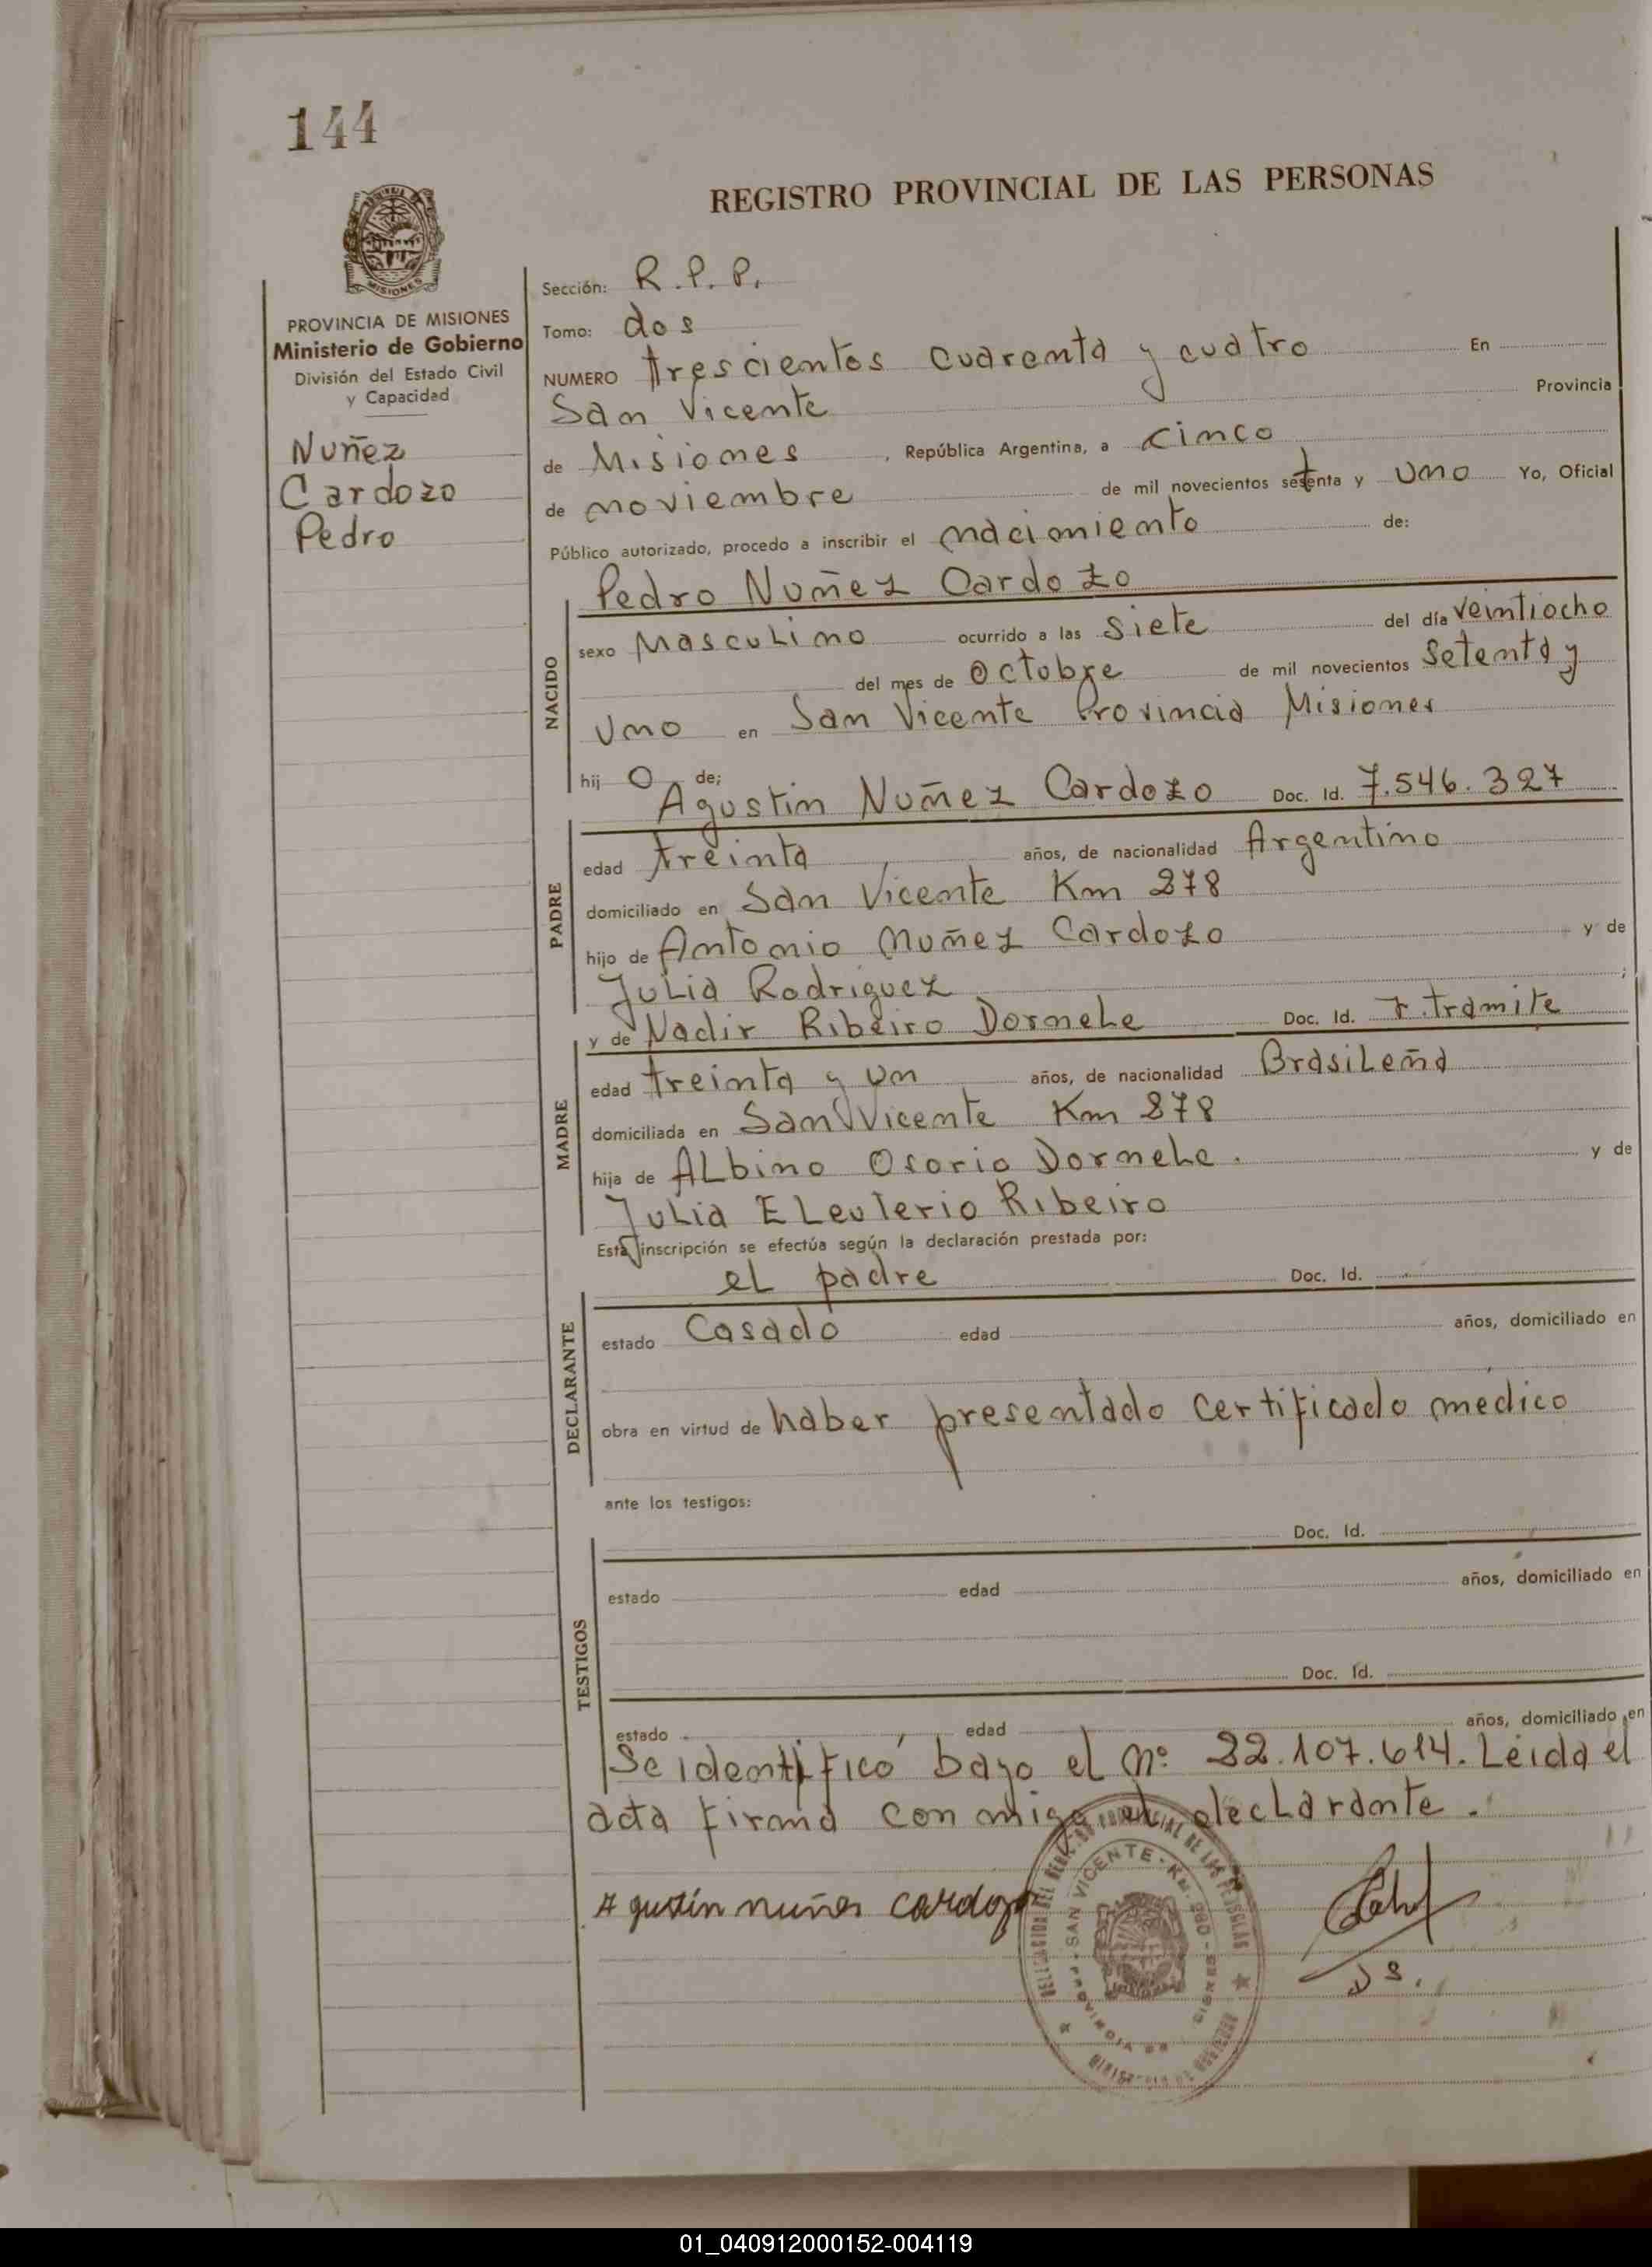 144
REGISTRO PROVINCIAL DE LAS PERSONAS
MISIONES
PROVINCIA DE MISIONES
Ministerio de Gobierno
División del Estado Civil
y Capacidad
Nuñez
Cardozo
Pedro
Sección: R.P.P.
Tomo: dos
NUMERO trescientos cuarenta y cuatro En
San Vicente Provincia
de Misiones, República Argentina, a cinco
de noviembre de mil novecientos setenta y uno Yo, Oficial
Público autorizado, procedo a inscribir el nacimiento de:
Pedro Nuñez Cardozo
NACIDO
sexo Masculino ocurrido a las siete del día veintiocho
del mes de octubre de mil novecientos setenta y
uno en San Vicente Provincia Misiones
hij o de;
Agustin Nuñez Cardozo Doc. Id. 7.546.327
PADRE
edad treinta años, de nacionalidad Argentino
domiciliado en San Vicente Km 278
hijo de Antonio Nuñez Cardozo y de
Julia Rodriguez;
y de Nadir Ribeiro Dornele Doc. Id. tramite
MADRE
edad treinta y un años, de nacionalidad Brasileña
domiciliada en San Vicente Km 278
hija de Albino Osorio Dornele. y de
Julia Eleuterio Ribeiro
Esta inscripción se efectúa según la declaración prestada por:
el padre Doc. Id.
DECLARANTE
estado Casado edad años, domiciliado en
obra en virtud de haber presentado certificado médico
ante los testigos:
Doc. Id.
TESTIGOS
estado edad años, domiciliado en
Doc. Id.
estado edad años, domiciliado en
Se identificó bajo el Nº 22.107.614. Leida el
acta firma con migo el declarante.
Agustin nuñes cardozo
SAN VICENTE - KM.
01_040912000152-004119